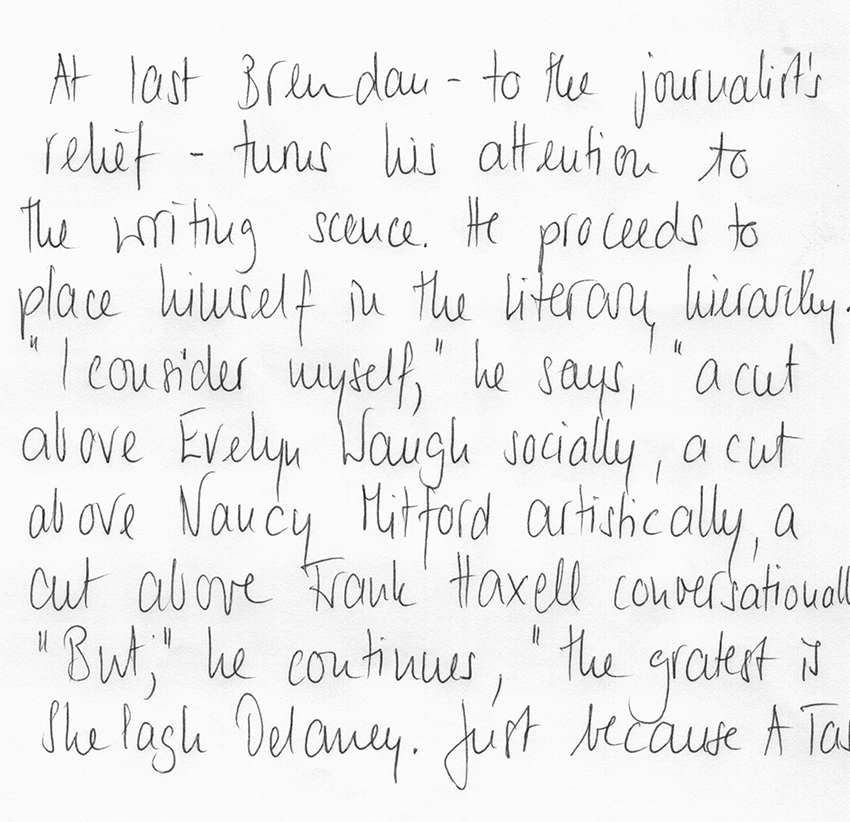 At last Brendan - to the journalist's
relief - turns his attention to
the writing scence. He proceeds to
place himself in the literary hierarchy.
"I consider myself," he says, "a cut
above Evelyn Waugh socially, a cut
above Nancy Mitford artistically, a
cut above Frank Haxell conversationall
"But," he continues, "the gratest is
Shelagh Delaney. Just because A Tas